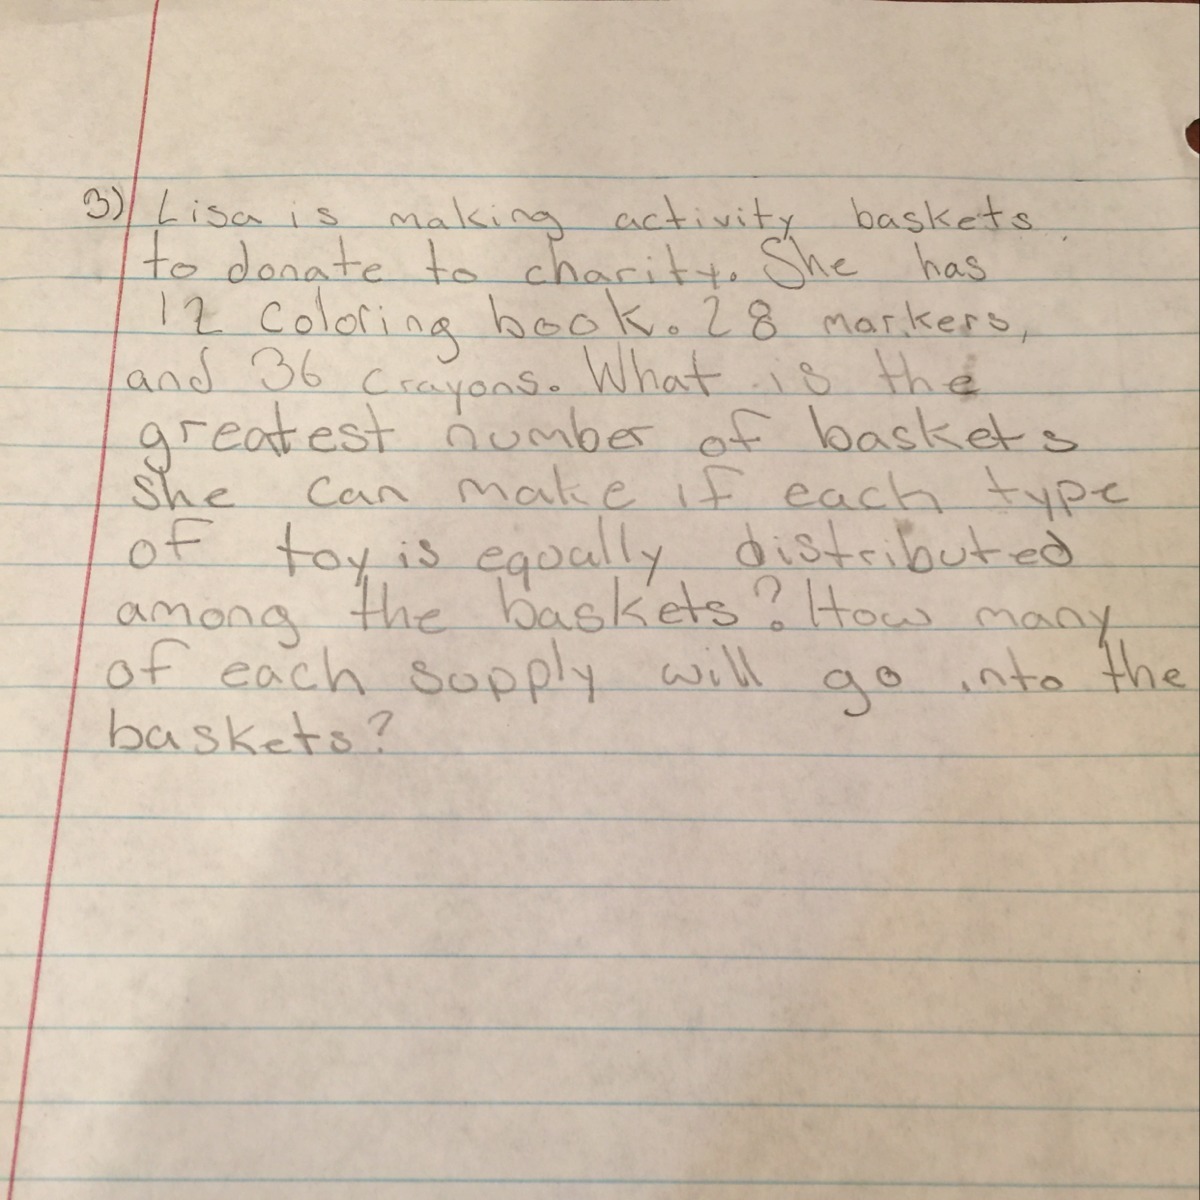 3) Lisa is making activity baskets
to donate to charity. She has
12 coloring book. 28 markers,
and 36 crayons. What is the
greatest number of baskets
she can make if each type
of toy is equally distributed
among the baskets? How many
of each supply will go into the
baskets?